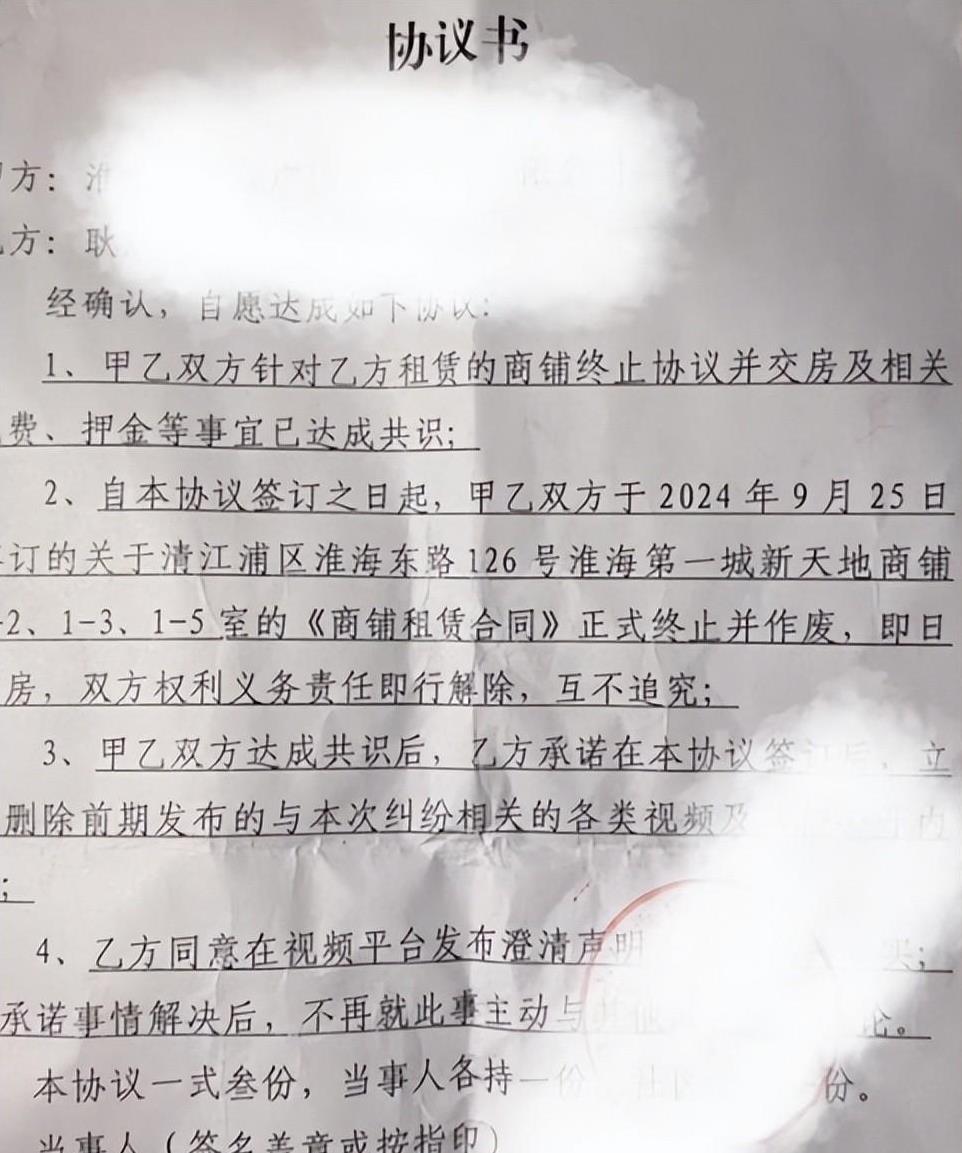 协议书
方：淮
方：耿
经确认，自愿达成如下协议：
1、甲乙双方针对乙方租赁的商铺终止协议并交房及相关
费、押金等事宜已达成共识；
2、自本协议签订之日起，甲乙双方于2024年9月25日
订的关于清江浦区淮海东路126号淮海第一城新天地商铺
-2、1-3、1-5室的《商铺租赁合同》正式终止并作废，即日
房，双方权利义务责任即行解除，互不追究；
3、甲乙双方达成共识后，乙方承诺在本协议签订后，立
删除前期发布的与本次纠纷相关的各类视频及
；
4、乙方同意在视频平台发布澄清声明
承诺事情解决后，不再就此事主动与其他 论。
本协议一式叁份，当事人各持一份 份。
当事人（签名盖章或按指印）